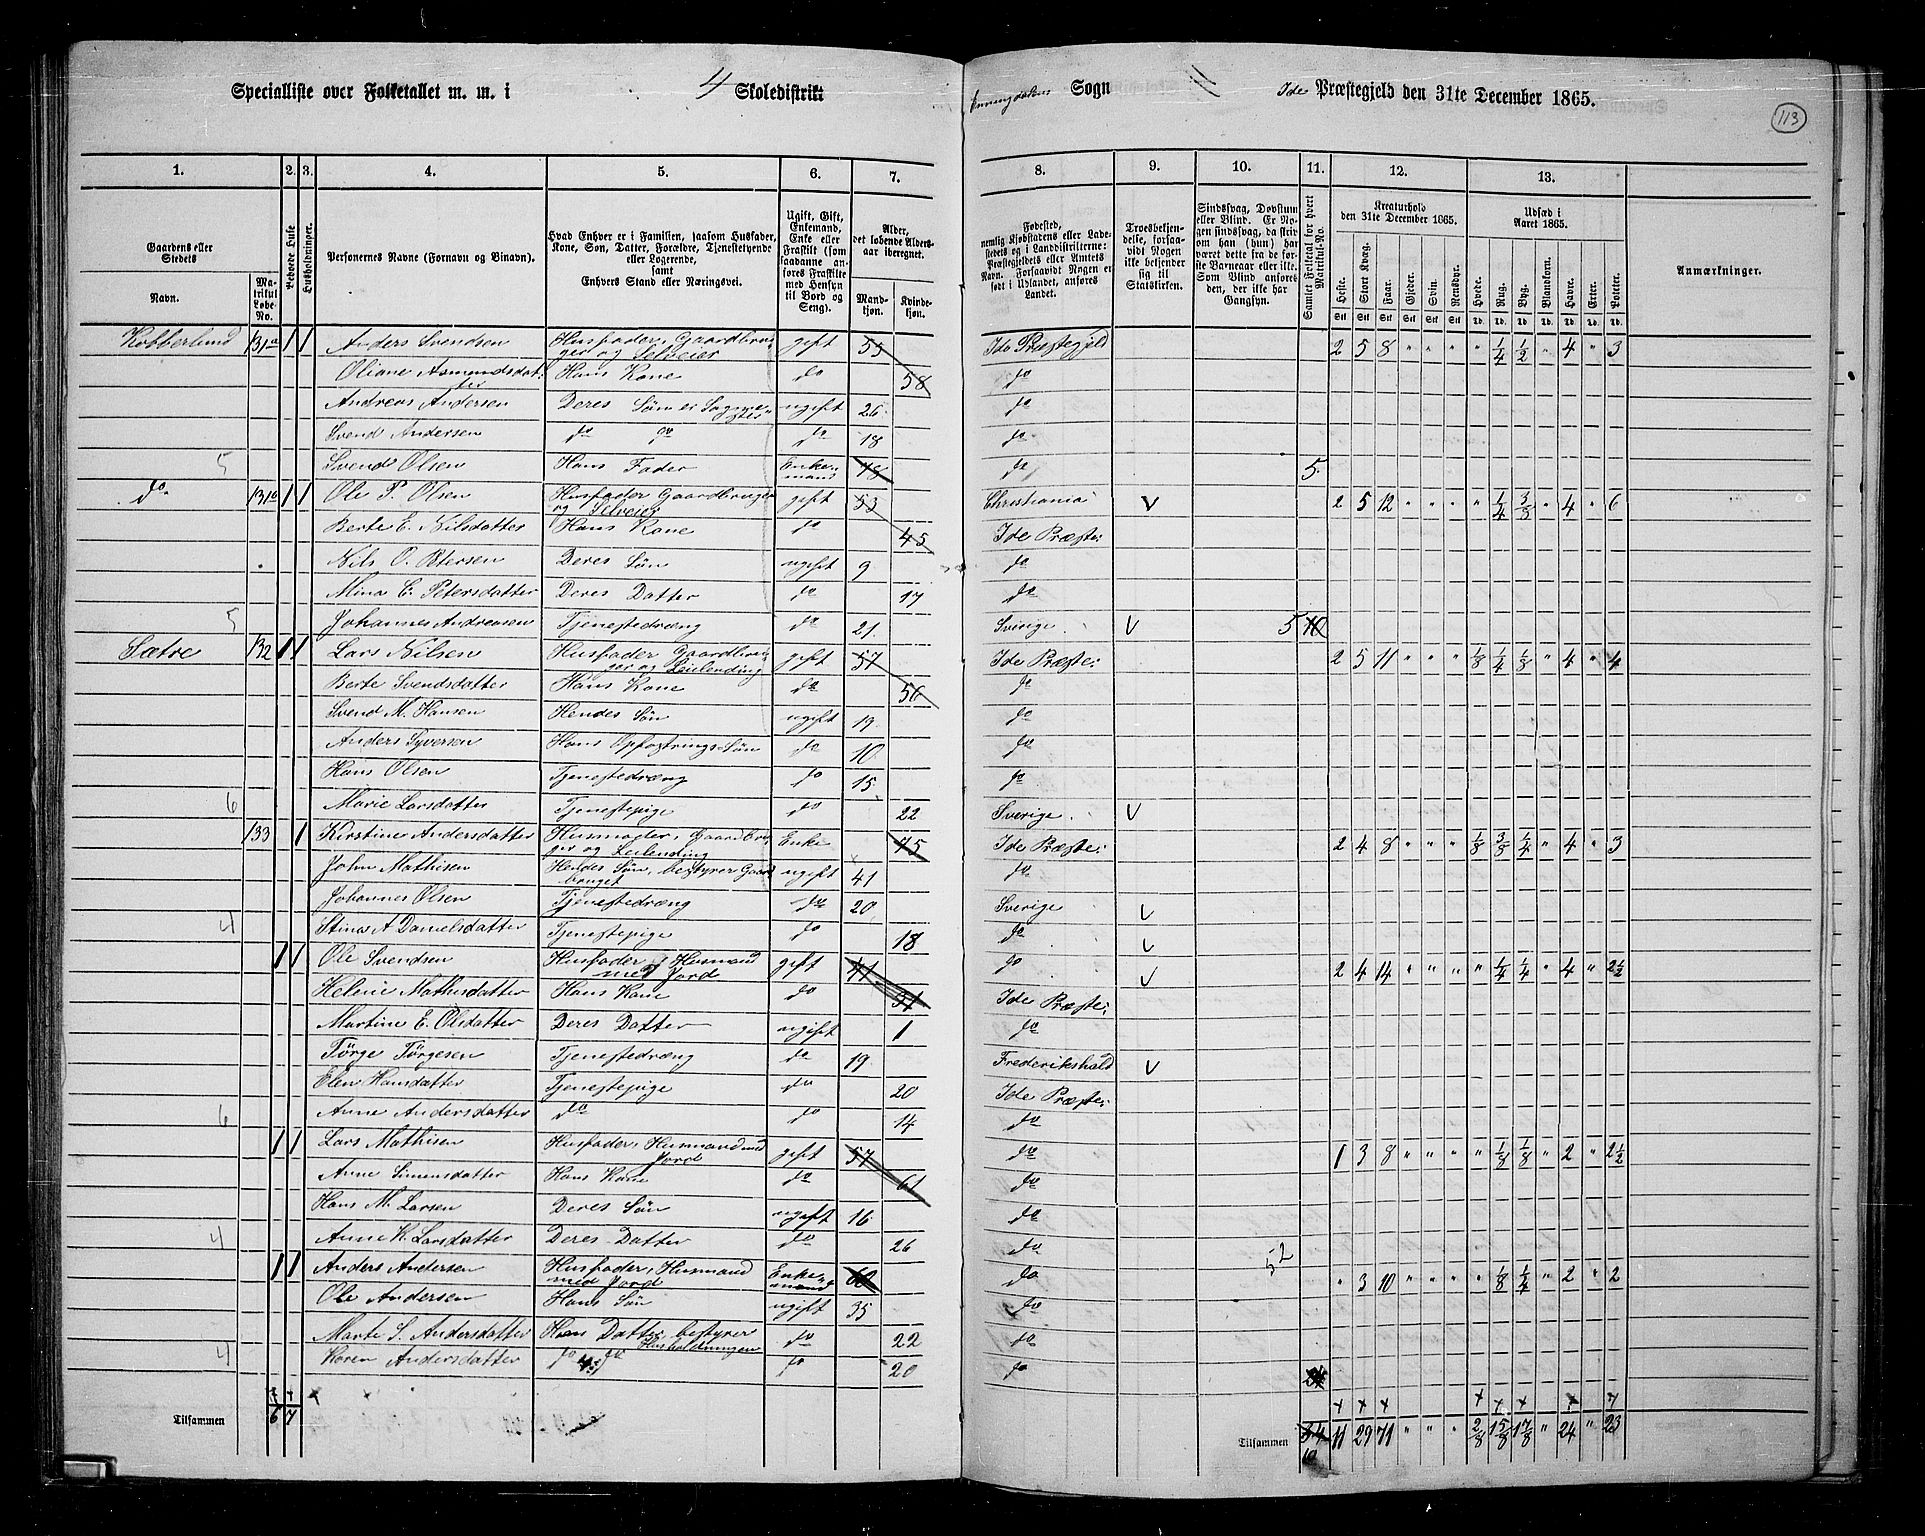 Specialliste over Folketallet m. m. i 4 Skoledistrikt Sogn Ide Præstegjeld den 31te December 1865.
113
1. 2. 3. 4. 5. 6. 7. 8. 9. 10. 11. 12. 13.
Gaardens eller Stedets
Navn.
Matrikul Løbe-No.
Beboede Huse
Husholdninger.
Personernes Navne (Fornavn og Binavn).
Hvad Enhver er i Familien, saasom Husfader, Kone, Søn, Datter, Forældre, Tjenestetyende eller Logerende, samt Enhvers Stand eller Næringsvei.
Ugift, Gift, Enkemand, Enke eller Fraskilt (som saadanne anføres Fraskilte med Hensyn til Bord og Seng).
Alder, det løbende Alders-aar iberegnet.
Mandkjøn.
Kvindekjøn.
Fødested, nemlig Kjøbstadens eller Ladestedets og i Landdistrikterne: Præstegjeldets eller Amtets Navn. Forsaavidt Nogen er født i Udlandet, anføres Landet.
Troesbekjendelse, forsaavidt Nogen ikke bekjender sig til Statskirken.
Sindssvag, Døvstum eller Blind. Er Nogen sindssvag, da skrives om han (hun) har været dette fra de første Barneaar eller ikke. Som Blind anføres den, der ikke har Gangsyn.
Samlet Folketal for hvert Matrikul-No.
Kreaturhold den 31te December 1865.
Heste. Stort Kvæg. Faar. Gjeder. Svin. Rensdyr.
Udsæd i Aaret 1865.
Hvede. Rug. Byg. Blandkorn. Havre. Erter. Poteter.
Anmærkninger.
Kobberlund 131a 1 1 Anders Svendsen Husfader, Gaardbruger og Selveier gift 55 Ide Præstegjeld 2 5 8 " " " " 1/4 1/2 " 4 " 3
Oliane Asmundsdatter Hans Kone do 58 do
Andreas Andersen Deres Søn ugift 26 do
Svend Andersen do do do 18 do
5 Svend Olsen Hans Fader Enkemand 78 do 5
do 131b 1 1 Ole P. Olsen Husfader Gaardbruger og Selveier gift 53 Christiania V 2 5 12 " " " " 1/4 3/8 " 4 " 6
Berte E. Nilsdatter Hans Kone do 45 Ide Præste:
Nils O. Petersen Deres Søn ugift 9 do
Mina E. Petersdatter Deres Datter do 17 do
5 Johannes Andreasen Tjenestedræng do 21 Sverige V 5 10
Sætre 132 1 1 Lars Nilsen Husfader Gaardbruger og Leilending gift 57 Ide Præste: 2 5 11 " " " 1/8 1/4 1/8 " 4 " 4
Berte Svendsdatter Hans Kone do 56 do
Svend M. Hansen Hendes Søn ugift 19 do
Anders Syversen Hans Opfostrings-Søn do 10 do
Hans Olsen Tjenestedræng do 15 do
6 Marie Larsdatter Tjenestepige do 22 Sverige V
133 1 Kirstine Andersdatter Husmoder, Gaardbruger og Leilending Enke 75 Ide Præste: 2 4 8 " " " 1/8 3/8 1/4 " 4 " 3
John Mathisen Hendes Søn, bestyrer Gaardbruget ugift 41 do
Johannes Olsen Tjenestedræng do 20 Sverige V
4 Stina A Danielsdatter Tjenestepige do 18 do V
1 1 Ole Svendsen Husfader, Husmand med Jord gift 41 do V 2 4 14 " " " " 1/4 1/4 " 4 " 2 1/2
Helene Mathisdatter Hans Kone do 31 Ide Præste:
Martine E. Olsdatter Deres Datter ugift 1 do
Tørge Tørgesen Tjenestedræng do 19 Frederikshald V
Elen Hansdatter Tjenestepige do 20 Ide Præste:
6 Anne Andersdatter do do 14 do
1 1 Lars Mathisen Husfader, Husmand med Jord gift 57 do 1 3 8 " " " " 1/8 1/8 " 2 " 2 1/2
Anne Simensdatter Hans Kone do 61 do
Hans M. Larsen Deres Søn ugift 16 do
4 Anne K. Larsdatter Deres Datter do 26 do
1 1 Anders Andersen Husfader, Husmand med Jord Enkemand 60 52 do " 3 10 " " " " 1/8 1/4 " 2 " 2
Ole Andersen Hans Søn ugift 35 do
Marte S. Andersdatter Hans Datter, bestyrer Husholdningen do 22 do
4 Karen Andersdatter do do do 20 do 24
Tilsammen 6 7
Tilsammen 34 11 29 71 " " " 2/8 1 5/8 1 7/8 " 24 " 23
10